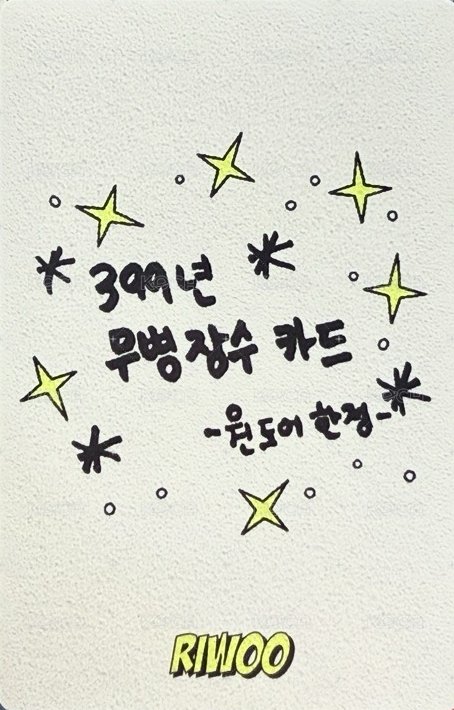 399년
무병장수 카드
-원도어 한정-
RIWOO